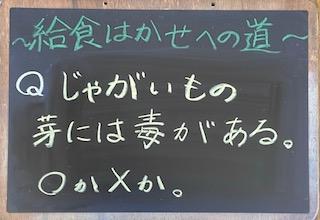 ～給食はかせへの道～
Qじゃがいもの
芽には毒がある。
○か×か。